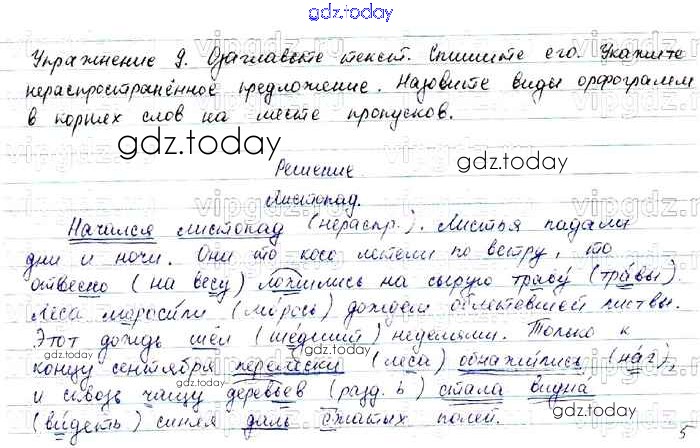 gdz.today
Упражнение 9. Озаглавьте текст. Спишите его. Укажите
нераспространённое предложение. Назовите виды орфограмм
в корнях слов на месте пропусков.
gdz.today
gdz.today
Решение.
Листопад.
Начался листопад (нераспр.). Листья падали
gdz.today
дни и ночи. Они то косо летели по ветру, то
отвесно (на весу) ложились на сырую траву (травы).
Леса моросили (морось) дождём облетевшей листвы.
Этот дождь шёл (шедший) неделями. Только к
gdz.today
концу сентября перелески (леса) обнажились (наг),
и сквозь чащу деревьев (разд. ь) стала видна
(видеть) синяя даль сжатых полей.
gdz.today
gdz.today
5